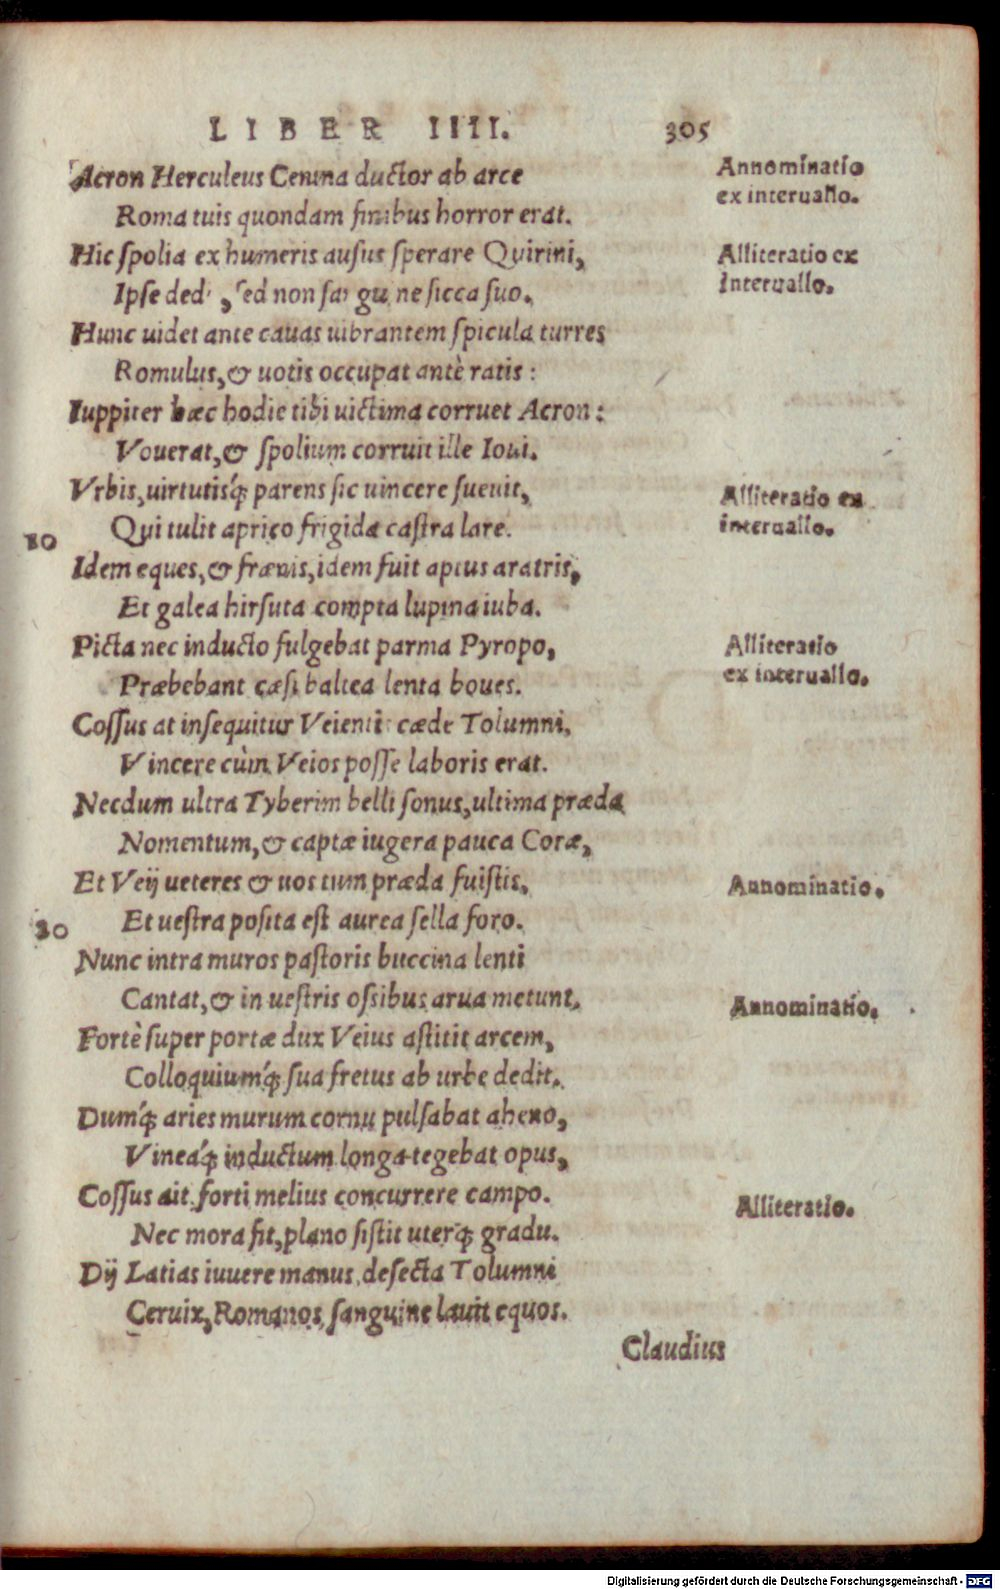 LIBER IIII. 305
Acron Herculeus Cenina ductor ab arce
Annominatio
ex interuallo.
Roma tuis quondam finibus horror erat.
Hic spolia ex humeris ausus sperare Quirini,
Alliteratio ex
interuallo.
Ipse ded , sed non san gu ne sicca suo.
Hunc uidet ante cauas uibrantem spicula turres
Romulus, & uotis occupat antè ratis:
Iuppiter hæc hodie tibi uictima corruet Acron:
Vouerat, & spolium corruit ille Ioui.
Vrbis, uirtutisq́; parens sic uincere sueuit,
Alliteratio ex
interuallo.
Qui tulit aprico frigida castra lare.
20
Idem eques, & frænis, idem fuit aptus aratris,
Et galea hirsuta compta lupina iuba.
Picta nec inducto fulgebat parma Pyropo,
Alliteratio
ex interuallo.
Præbebant cæsi baltea lenta boues.
Cossus at insequitur Veienti cæde Tolumni,
Vincere cùm Veios posse laboris erat.
Necdum ultra Tyberim belli sonus, ultima præda
Nomentum, & captæ iugera pauca Coræ,
Et Veij ueteres & uos tum præda fuistis,
Annominatio.
Et uestra posita est aurea sella foro.
30
Nunc intra muros pastoris buccina lenti
Cantat, & in uestris ossibus arua metunt.
Annominatio.
Fortè super portæ dux Veius astitit arcem,
Colloquiumq́; sua fretus ab urbe dedit.
Dumq́; aries murum cornu pulsabat aheno,
Vineaq́; inductum longa tegebat opus,
Cossus ait forti melius concurrere campo.
Alliteratio.
Nec mora fit, plano sistit uterq́; gradu.
Dij Latias iuuere manus, desecta Tolumni
Ceruix, Romanos sanguine lauit equos.
Claudius
Digitalisierung gefördert durch die Deutsche Forschungsgemeinschaft - DFG